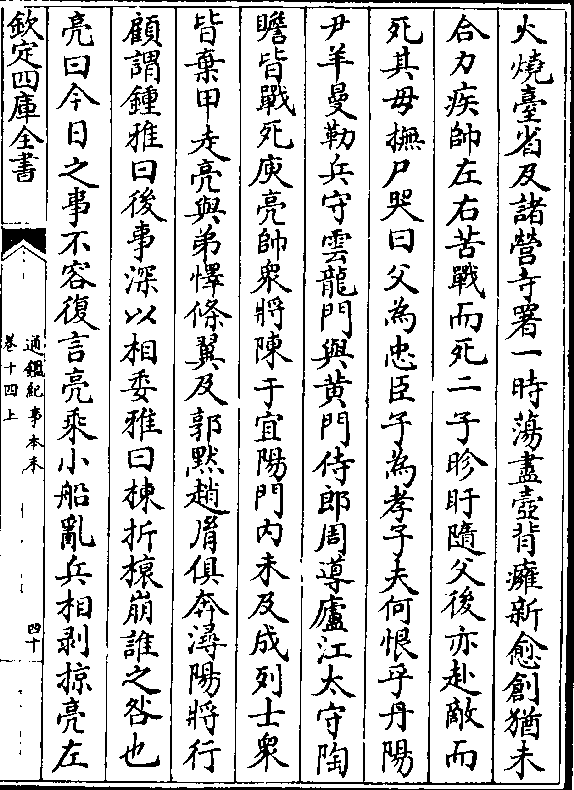 火燒臺省及諸營寺署一時蕩盡壺背癰新愈創猶未
合力疾帥左右苦戰而死二子眕盱隨父後亦赴敵而
死其母撫尸哭曰父為忠臣子為孝子夫何恨乎丹陽
尹羊曼勒兵守雲龍門與黄門侍郎周導廬江太守陶
瞻皆戰死庾亮帥衆將陳于宜陽門内未及成列士衆
皆棄甲走亮與弟懌條翼及郭黙趙𦙍俱奔潯陽將行
顧謂鍾雅曰後事深以相委雅曰棟折榱崩誰之咎也
亮曰今日之事不容復言亮乘小船亂兵相剥掠亮左
欽定四庫全書
通鑑紀事本末
卷十四上
四十